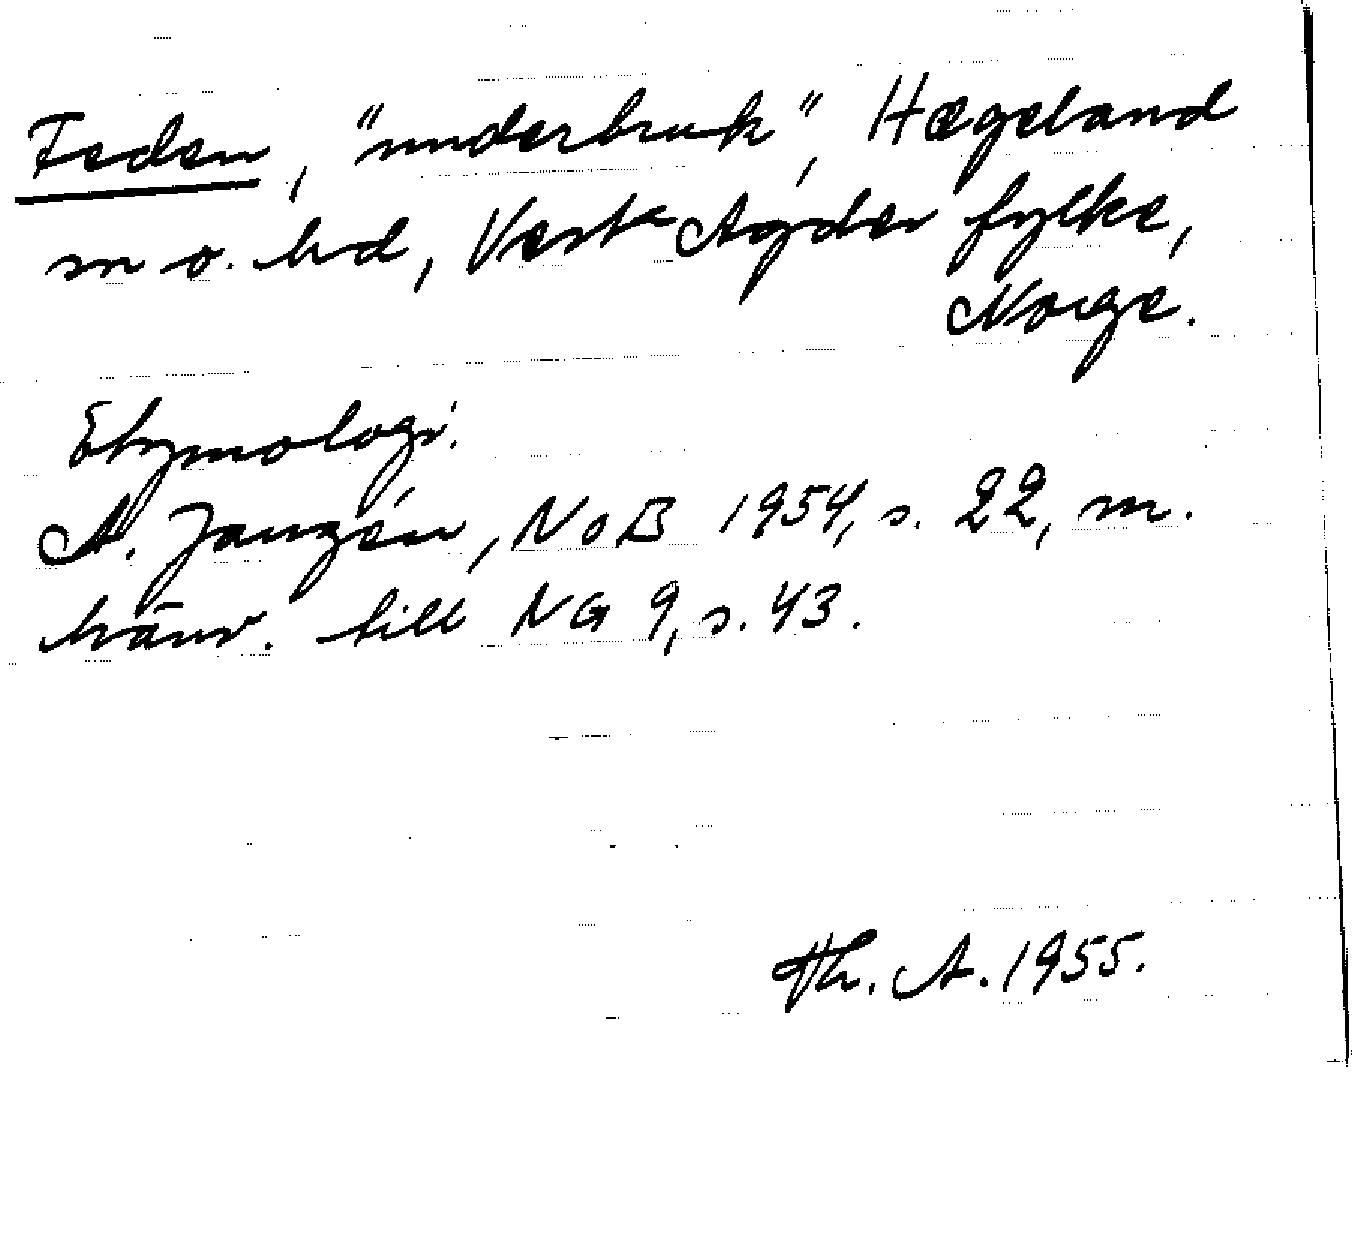 Feden, "underbruk", Hægeland
sn o. hd, Vest-Agder fylke,
Norge.
Etymologi.
A. Janzén, NoB 1954, s. 22, m.
hänv. till NG 9, s. 43.
Th. A. 1955.